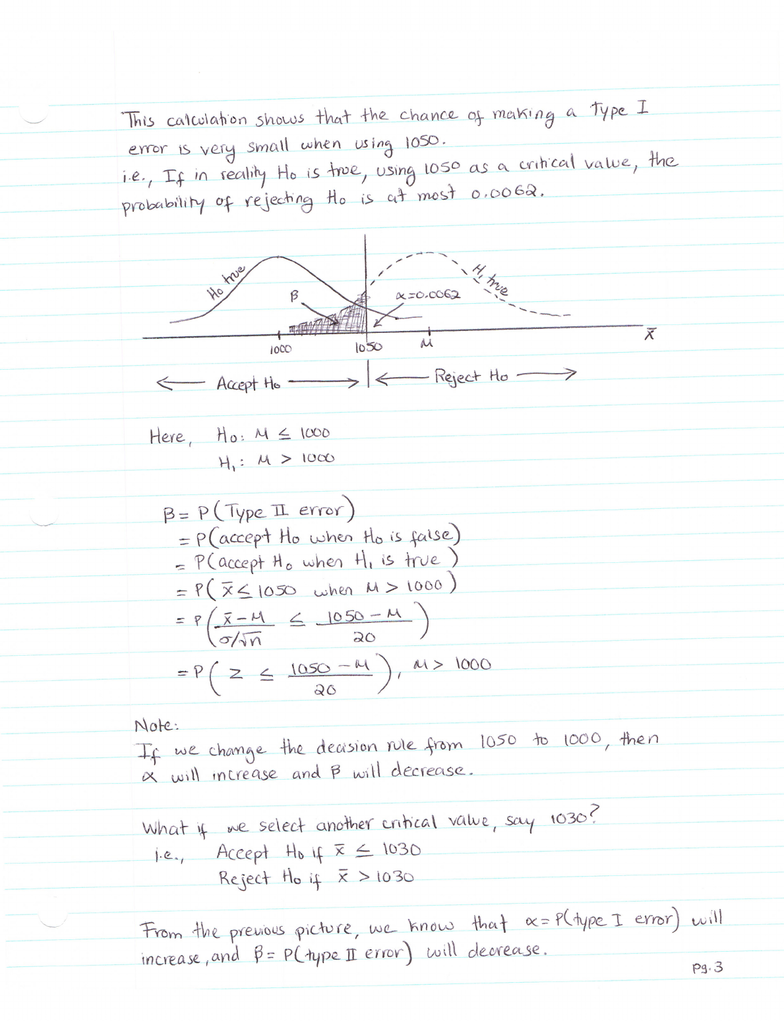 This calculation shows that the chance of making a Type I
error is very small when using 1050.
i.e., If in reality Ho is true, using 1050 as a critical value, the
probability of rejecting Ho is at most 0.0062.
Ho true
H₁ true
β
α=0.0062
1000
1050
M
x̄
← Accept Ho →
← Reject Ho →
Here, Ho: M ≤ 1000
H₁: M > 1000
β = P(Type II error)
= P(accept Ho when Ho is false)
= P(accept Ho when H₁ is true)
= P(x̄ ≤ 1050 when M > 1000)
= P( (x̄-M)/(σ/√n) ≤ (1050-M)/20 )
= P( Z ≤ (1050-M)/20 ), M > 1000
Note:
If we change the decision rule from 1050 to 1000, then
α will increase and β will decrease.
What if we select another critical value, say 1030?
i.e., Accept Ho if x̄ ≤ 1030
Reject Ho if x̄ > 1030
From the previous picture, we know that α = P(type I error) will
increase, and β = P(type II error) will decrease.
Pg. 3